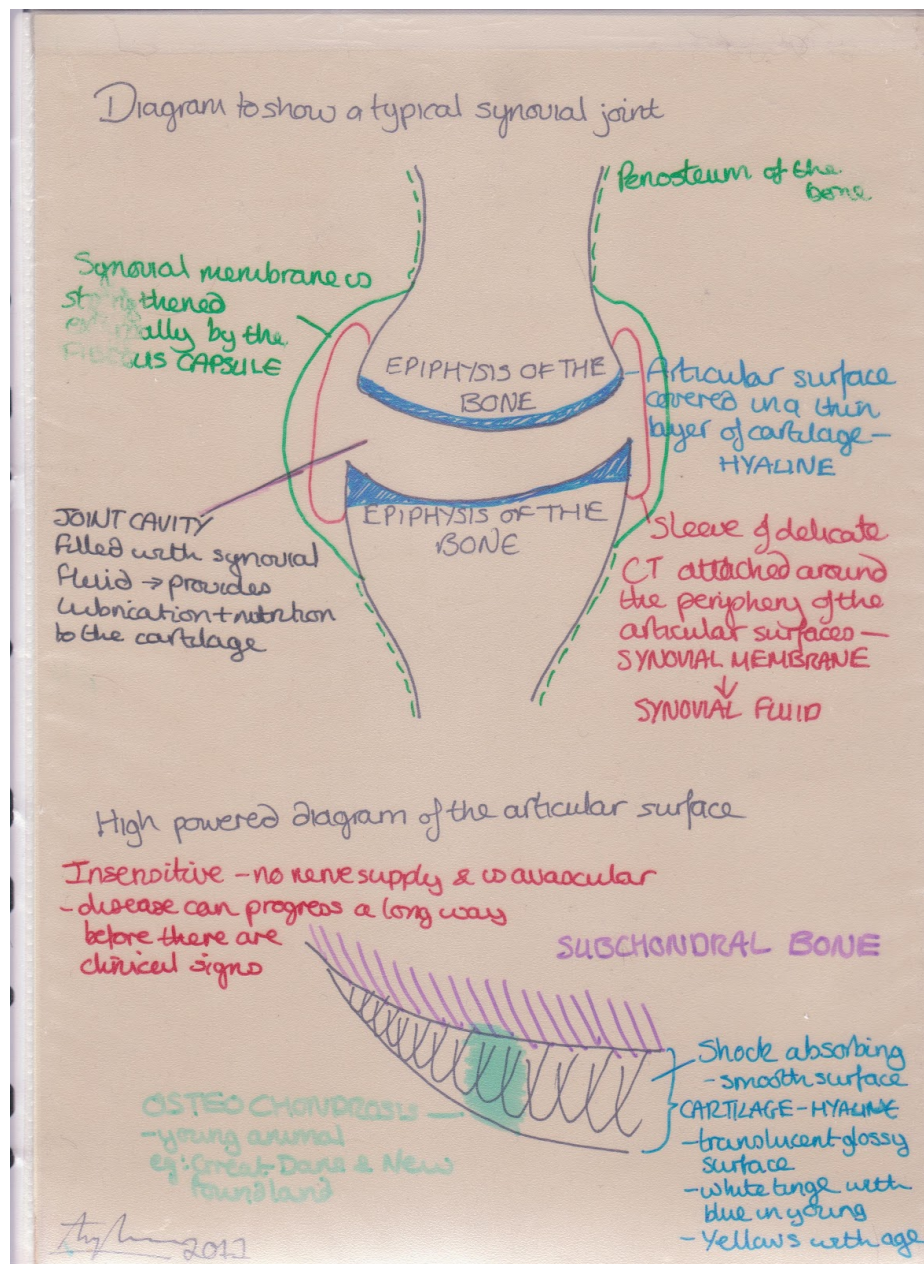 Diagram to show a typical synovial joint
Periosteum of the
bone
Synovial membrane is
strengthened
externally by the
FIBROUS CAPSULE
EPIPHYSIS OF THE
BONE
Articular surface
covered in a thin
layer of cartilage -
HYALINE
EPIPHYSIS OF THE
BONE
JOINT CAVITY
filled with synovial
fluid → provides
lubrication + nutrition
to the cartilage
Sleeve of delicate
CT attached around
the periphery of the
articular surfaces -
SYNOVIAL MEMBRANE
↓
SYNOVIAL FLUID
High powered diagram of the articular surface
Insensitive - no nerve supply & is avascular
- disease can progress a long way
before there are
clinical signs
SUBCHONDRAL BONE
Shock absorbing
- smooth surface
CARTILAGE - HYALINE
- translucent glossy
surface
- white tinge with
blue in young
- Yellows with age
OSTEOCHONDROSIS
- young animal
eg: Great Dane & New
foundland
2011